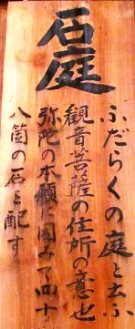 石庭
ふだらくの庭と云ふ
観音菩薩の住所の意也
弥陀の本願に因みて四十
八箇の石を配す